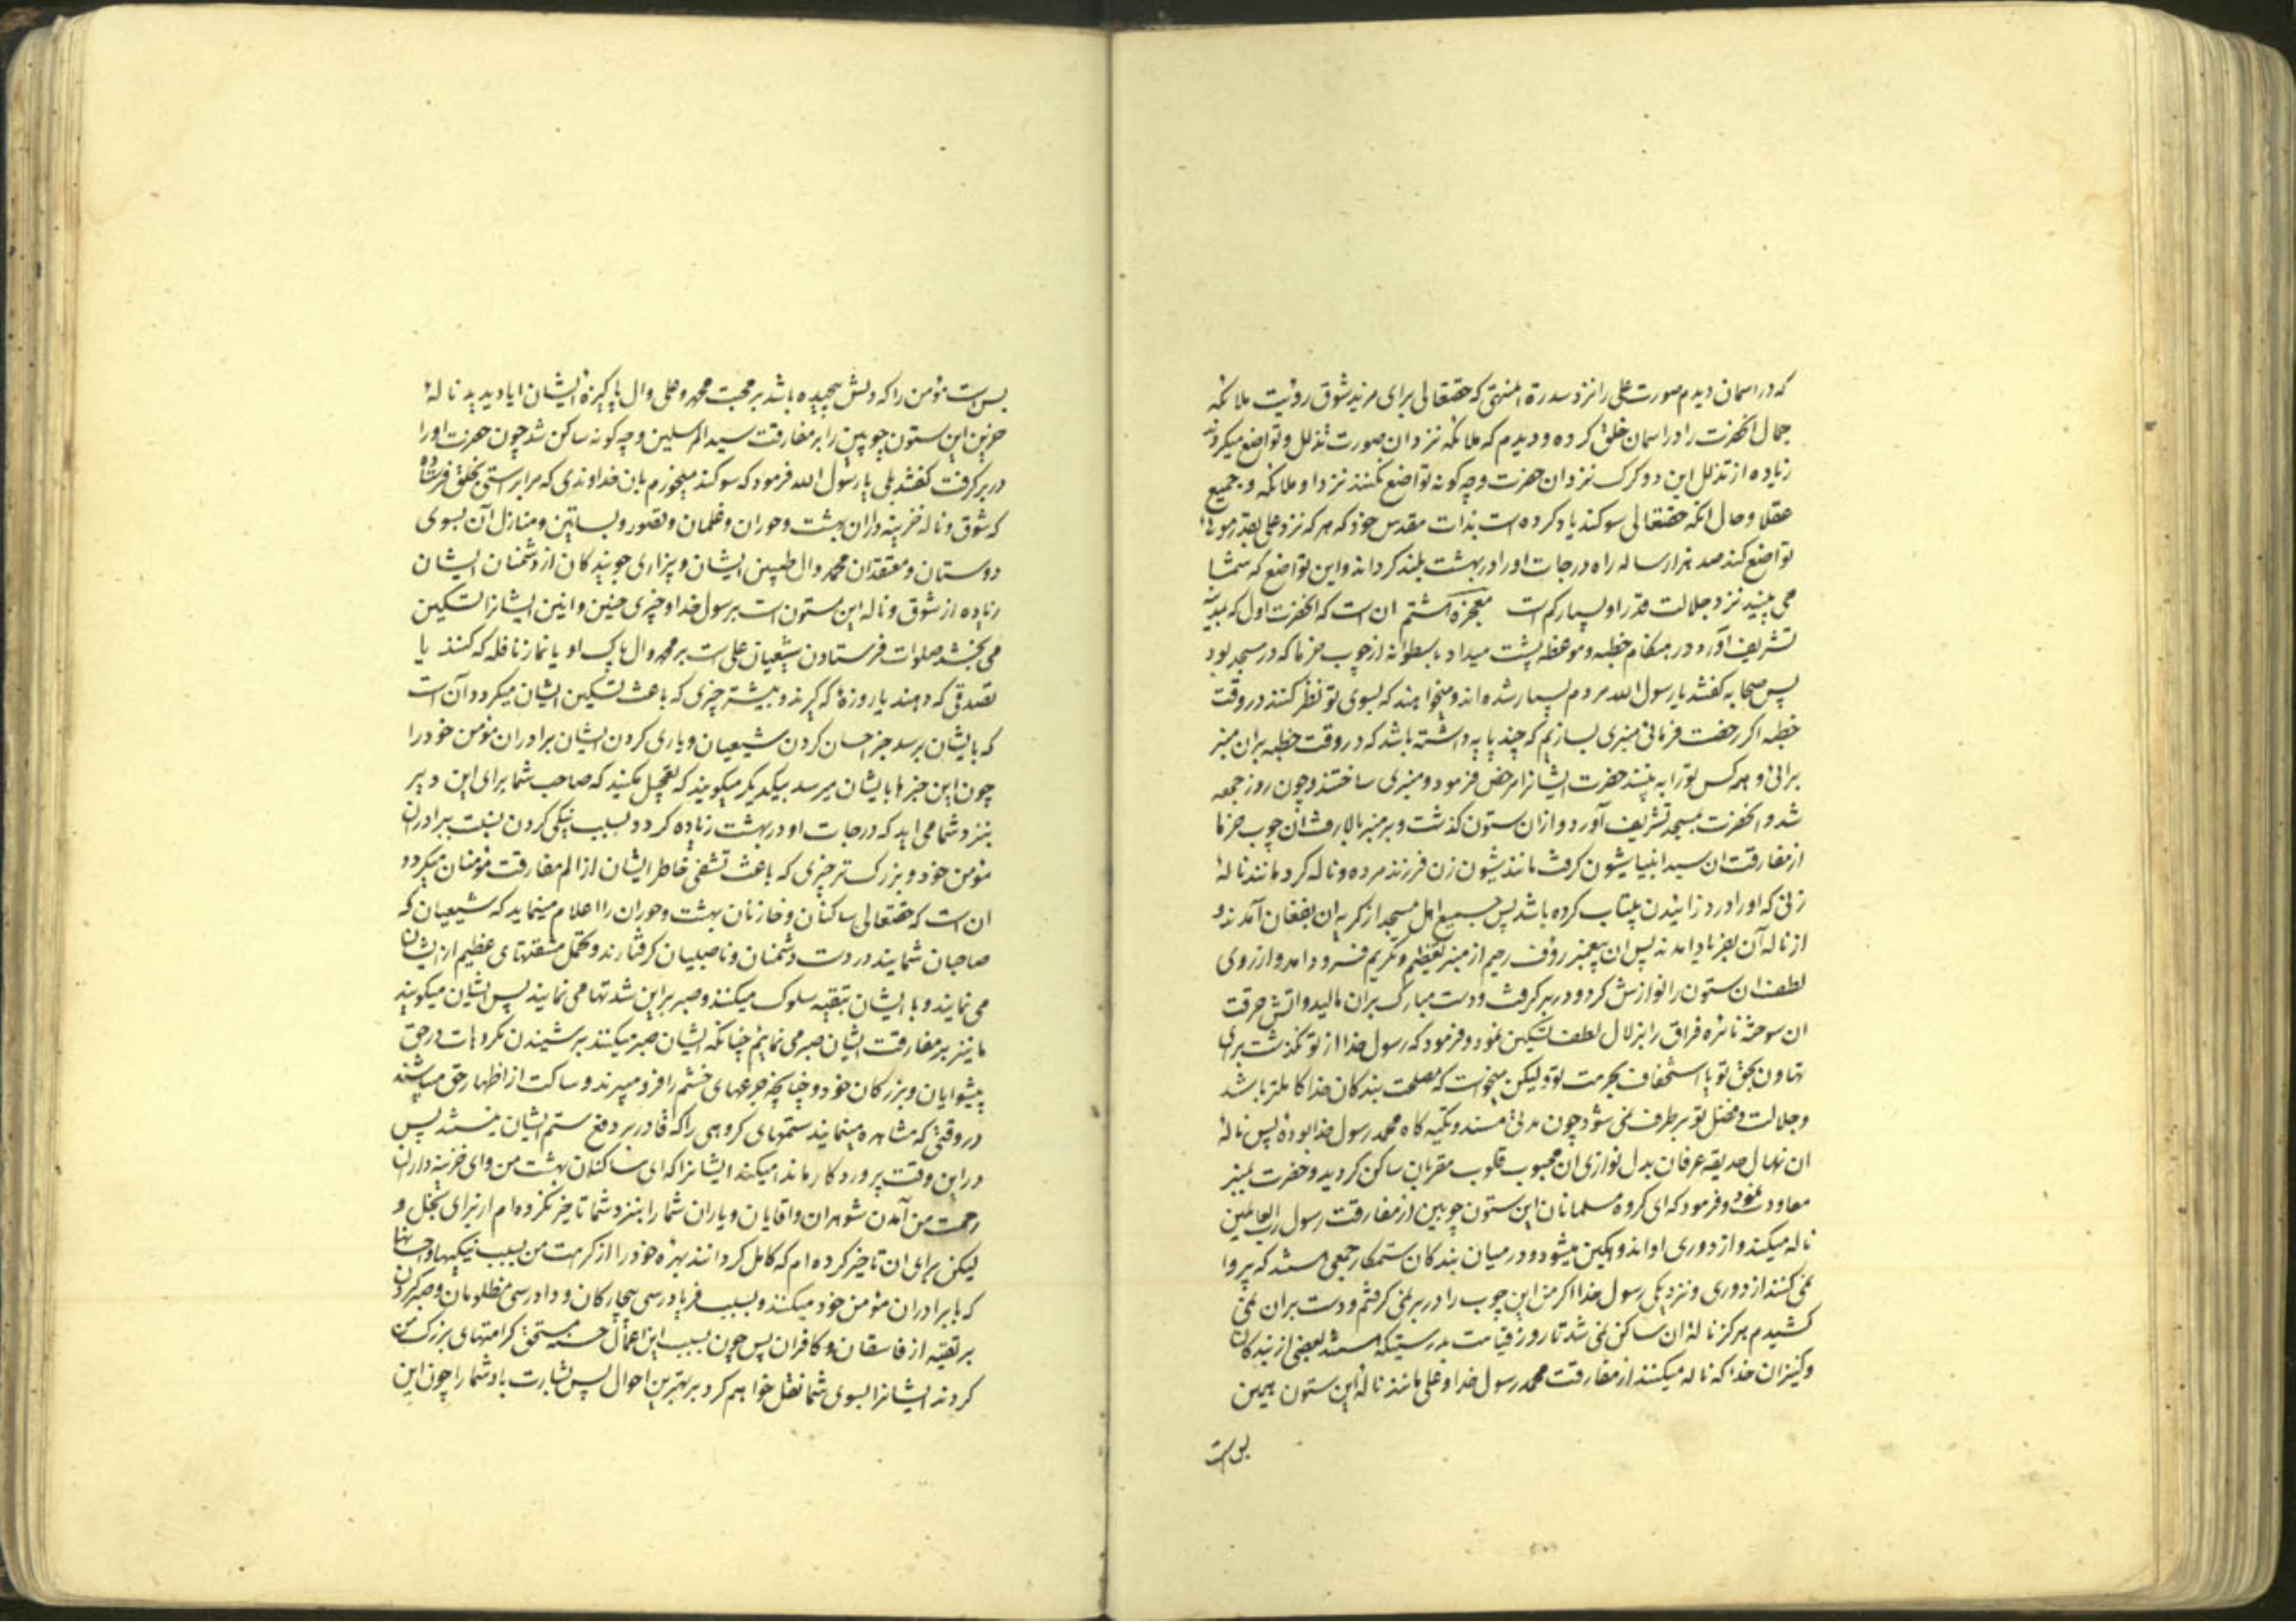 که در اسمان دیدم صورت علی را نزد سدرة المنتهی که حقتعالی برای مزید شوق رؤیت ملائکه
جمال انحضرت را در اسمان خلق کرده و دیدم که ملائکه نزد ان صورت تذلل و تواضع میکردند
زیاده از تذلل این دو کرک نزد ان حضرت و چه کونه تواضع نکنند نزد او ملائکه و جمیع
عقلا و حال انکه حقتعالی سوکند یاد کرده است بذات مقدس خود که هر که نزد علی بقدر موئی
تواضع کند صد هزار ساله راه درجات او را در بهشت بلند کرداند و این تواضع که شما
می بینید نزد جلالت قدر او بسیار کم است معجزه هشتم ان است که انحضرت اول که بمدینه
تشریف آورد در هنکام خطبه و موعظه پشت میداد باسطوانه از چوب خرما که در مسجد بود
پس صحابه کفتند یا رسول الله مردم بسیار شده اند و میخواهند که بسوی تو نظر کنند در وقت
خطبه اکر رخصت فرمائی منبری بسازیم که چند پایه داشته باشد که در وقت خطبه بران منبر
برائی و همه کس تو را به بینند حضرت ایشانرا مرخص فرمود و منبری ساختند و چون روز جمعه
شد و انحضرت بمسجد تشریف آورد و از ان ستون کذشت و بر منبر بالا رفت ان چوب خرما
از مفارقت ان سید انبیا شیون کرفت مانند شیون زن فرزند مرده و ناله کرد مانند ناله
زنی که او را درد زائیدن بیتاب کرده باشد پس جمیع اهل مسجد از کریه ان بفغان آمدند و
از ناله آن بفریاد امدند پس ان پیغمبر رؤف رحیم از منبر تعظیم و تکریم فرود امد و از روی
لطف ان ستون را نوازش کرد و در بر کرفت و دست مبارک بران مالید و اتش حرقت
ان سوخته نائره فراق را بزلال لطف تسکین نمود و فرمود که رسول خدا از تو نکذشت برای
تهاون بحق تو یا استخفاف بحرمت تو و لیکن میخواست که مصلحت بندکان خدا کاملتر باشد
و جلالت و فضل تو بر طرف نمی شود چون مدتی مسند و تکیه کاه محمد رسول خدا بوده پس ناله
ان نهال حدیقه عرفان بدل نوازی ان محبوب قلوب مقربان ساکن کردید و حضرت بمنبر
معاودت نمود و فرمود که ای کروه مسلمانان این ستون چوبین از مفارقت رسول رب العالمین
ناله میکند و از دوری او اندوهکین میشود و در میان بندکان ستمکار جمعی هستند که پروا
نمی کنند از دوری و نزدیکی رسول خدا اکر من این چوب را در بر نمی کرفتم و دست بران نمی
کشیدم هرکز ناله ان ساکن نمی شد تا روز قیامت بدرستیکه هستند بعضی از بندکان
و کنیزان خدا که ناله میکنند از مفارقت محمد رسول خدا و علی مانند ناله این ستون همین
بس است
بس است مؤمن را که دلش پیچیده باشد بر محبت محمد و علی و ال پاکیزه ایشان ایا دیدید ناله
حزین این ستون چوبین را بر مفارقت سید المرسلین و چه کونه ساکن شد چون حضرت او را
در بر کرفت کفتند بلی یا رسول الله فرمود که سوکند میخورم بان خداوندی که مرا براستی بخلق فرستاده
که شوق و ناله خزینه داران بهشت و حوران و غلمان و قصور و بساتین و منازل آن بسوی
دوستان و معتقدان محمد و ال طیبین ایشان و بیزاری جویندکان از دشمنان ایشان
زیاده از شوق و ناله این ستون است برسول خدا و چیزی حنین و انین ایشانرا تسکین
می بخشد صلوات فرستادن شیعیان علی است بر محمد و ال پاک او یا نماز نافله که کنند یا
تصدقی که دهند یا روزۀ که کیرند و بیشتر چیزی که باعث تسکین ایشان میکردد آن است
که بایشان برسد خبر احسان کردن شیعیان و یاری کردن ایشان برادران مؤمن خود را
چون این خبرها بایشان میرسد بیکدیکر میکویند که تعجیل مکنید که صاحب شما برای این دیر
بنزد شما می اید که درجات او در بهشت زیاده کردد بسبب نیکی کردن نسبت ببرادران
مؤمن خود و بزرکتر چیزی که باعث تشفی خاطر ایشان از الم مفارقت مؤمنان میکردد
ان است که حقتعالی ساکنان و خازنان بهشت و حوران را اعلام مینماید که شیعیان که
صاحبان شمایند در دست دشمنان و ناصبیان کرفتارند و تحمل مشقتهای عظیم از ایشان
می نمایند و با ایشان بتقیه سلوک میکنند و صبر بر این شدتها می نمایند پس ایشان میکویند
ما نیز بر مفارقت ایشان صبر می نمائیم چنانکه ایشان صبر میکنند بر شنیدن مکروهات در حق
پیشوایان و بزرکان خود و چنانچه جرعهای خشم را فرو میبرند و ساکت از اظهار حق میباشند
در وقتی که مشاهده مینمایند ستمهای کروهی را که قادر بر دفع ستم ایشان نیستند پس
در این وقت پروردکار ما ندا میکند ایشانرا که ای ساکنان بهشت من و ای خزینه داران
رحمت من آمدن شوهران و اقایان و یاران شما را بنزد شما تاخیر نکرده ام از برای بخل و
لیکن برای ان تاخیر کرده ام که کامل کردانند بهره خود را از کرامت من بسبب نیکیها و احسانها
که با برادران مؤمن خود میکنند و بسبب فریادرسی بیچارکان و دادرسی مظلومان و صبر کردن
بر تقیه از فاسقان و کافران پس چون بسبب این اعمال حسنه مستحق کرامتهای بزرک من
کردند ایشانرا بسوی شما نقل خواهم کرد بر بهترین احوال پس بشارت باد شما را چون این